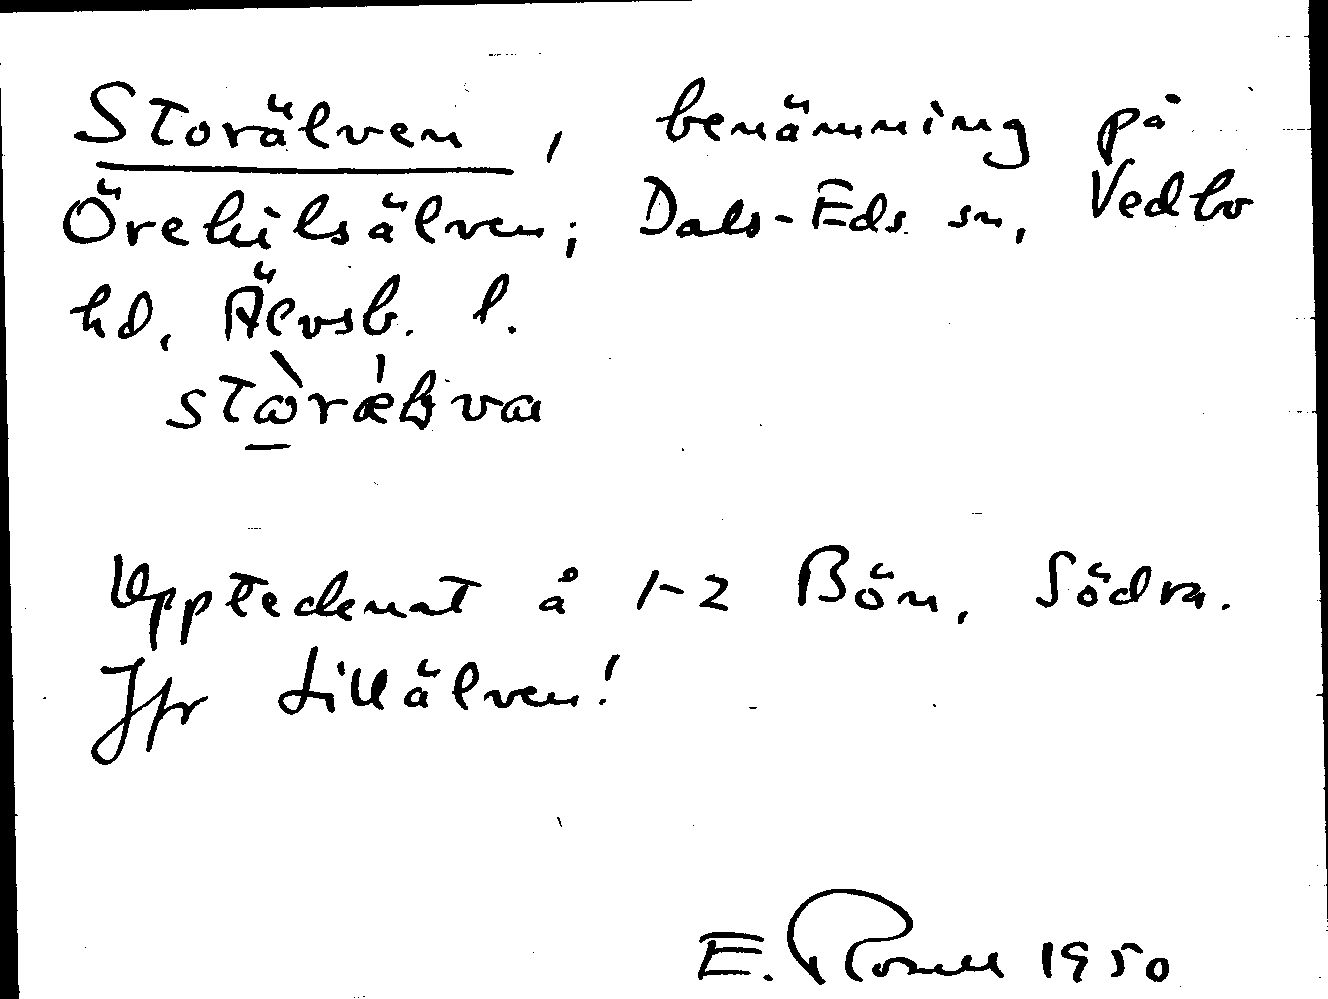 Storälven, benämning på
Örekilsälven; Dals-Eds sn, Vedbo
hd, Älvsb. l.
Upptecknat å 1-2 Bön, Södra.
Jfr Lillälven!
E. Rosell 1950